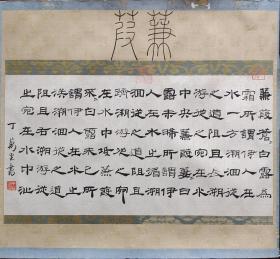 蒹葭
蒹葭蒼白露為
霜所謂伊人在
水一方溯洄從
之道阻且長溯
游從之宛在水
中央蒹葭萋白
露未晞所謂伊
人在水之湄溯
洄從之道阻且
躋溯游從之宛
在水中坻蒹葭
采白露未已所
謂伊人在水之
涘溯洄從之道
阻且右溯游從
之宛在水中沚